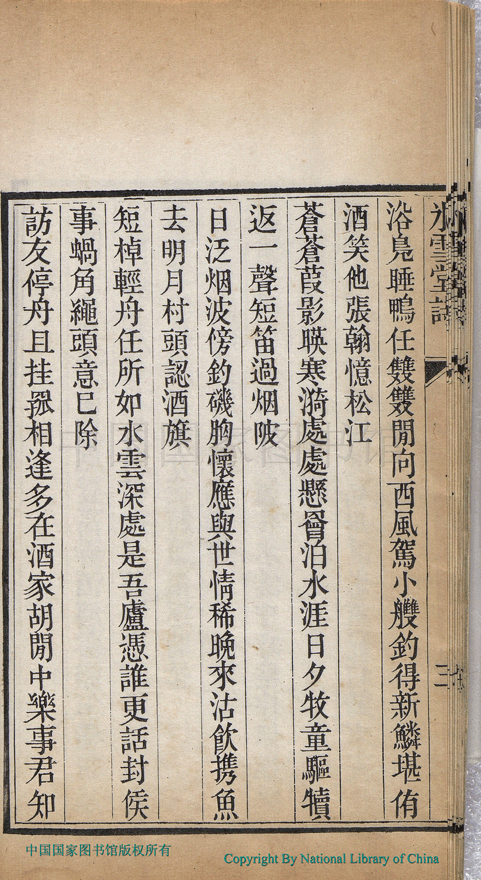 氷雪堂詩
三
浴鳬睡鴨任雙雙閒向西風駕小艭釣得新鱗堪侑
酒笑他張翰憶松江
蒼蒼葭影暎寒漪處處懸罾泊水涯日夕牧童驅犢
返一聲短笛過烟陂
日泛烟波傍釣磯胸懷應與世情稀晚來沽飲携魚
去明月村頭認酒旗
短棹輕舟任所如水雲深處是吾廬憑誰更話封侯
事蝸角繩頭意已除
訪友停舟且挂罛相逢多在酒家胡閒中樂事君知
中国国家图书馆
中国国家图书馆版权所有
Copyright By National Library of China